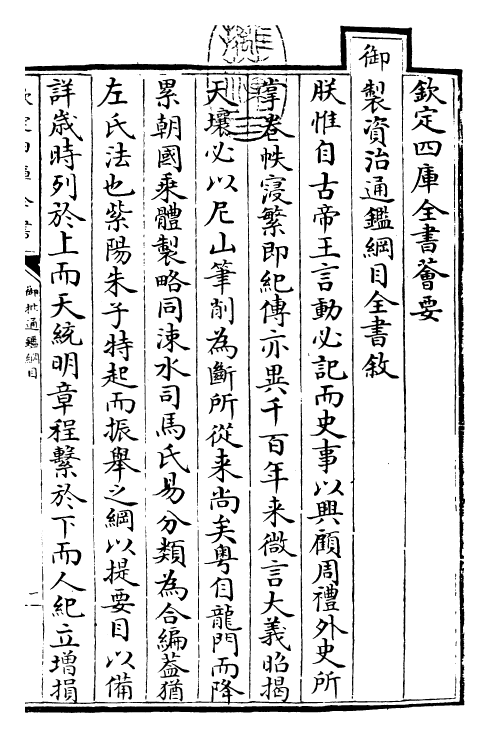 欽定四庫全書薈要
御製資治通鑑綱目全書敘
朕惟自古帝王言動必記而史事以興顧周禮外史所
掌卷帙寖繁即紀傳亦異千百年来微言大義昭揭
天壤必以尼山筆削為斷所從来尚矣粵自龍門而降
累朝國乘體製略同涑水司馬氏易分類為合編葢猶
左氏法也紫陽朱子特起而振舉之綱以提要目以備
詳歳時列於上而天統明章程繫於下而人紀立増損
欽定四庫全書
御批通鑑綱目
一